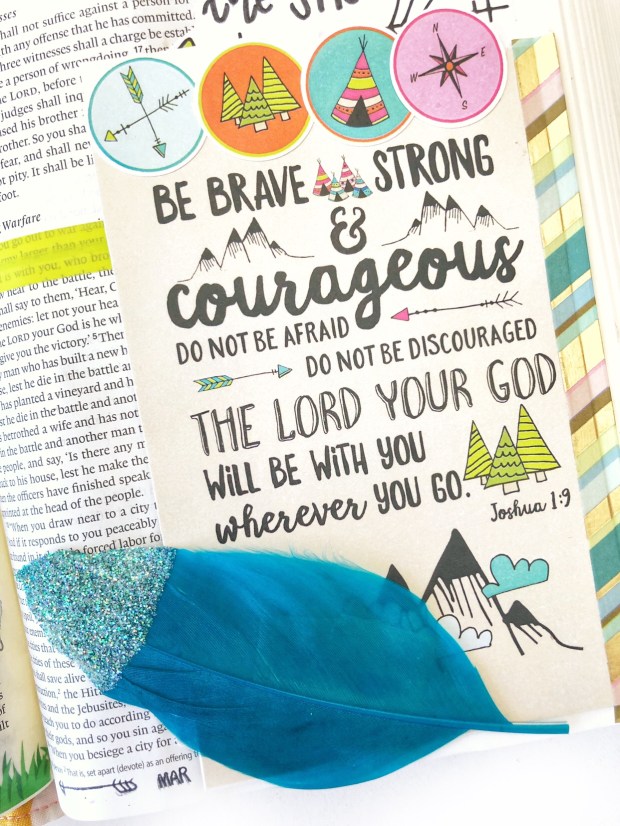 hall not suffice against a person for
th any offense that he has committed.
three witnesses shall a charge be estab
e a person of wrongdoing, 17 then
LORD, before
judges shall inq
used his brother
rother. So you sha
fear, and shall nev
ot pity. It shall be li
foot.
Warfare
you go out to war again
my larger than your
o with you, who bro
near to the battle, the
hall say to them, 'Hear, O
enemies: let not your hea
the LORD your God is he wh
give you the victory.' 5 Ther
man who has built a new h
se, lest he die in the battle an
has planted a vineyard and h
st he die in the battle and anot
s betrothed a wife and has not
in the battle and another man t
people, and say, 'Is there any m
k to his house, lest he make the
en the officers have finished speak
pointed at the head of the people.
"When you draw near to a city t
And if it responds to you peaceably
do forced labor fo
that
of these
shall save alive
the Hit
and the Jebusites,
you to do according
gods, and so you sin again
When you besiege a city for
that is, set apart (devote) as an offering
MAR
N
W E
S
BE BRAVE STRONG
&
courageous
DO NOT BE AFRAID
DO NOT BE DISCOURAGED
THE LORD YOUR GOD
WILL BE WITH YOU
wherever YOU GO.
Joshua 1:9